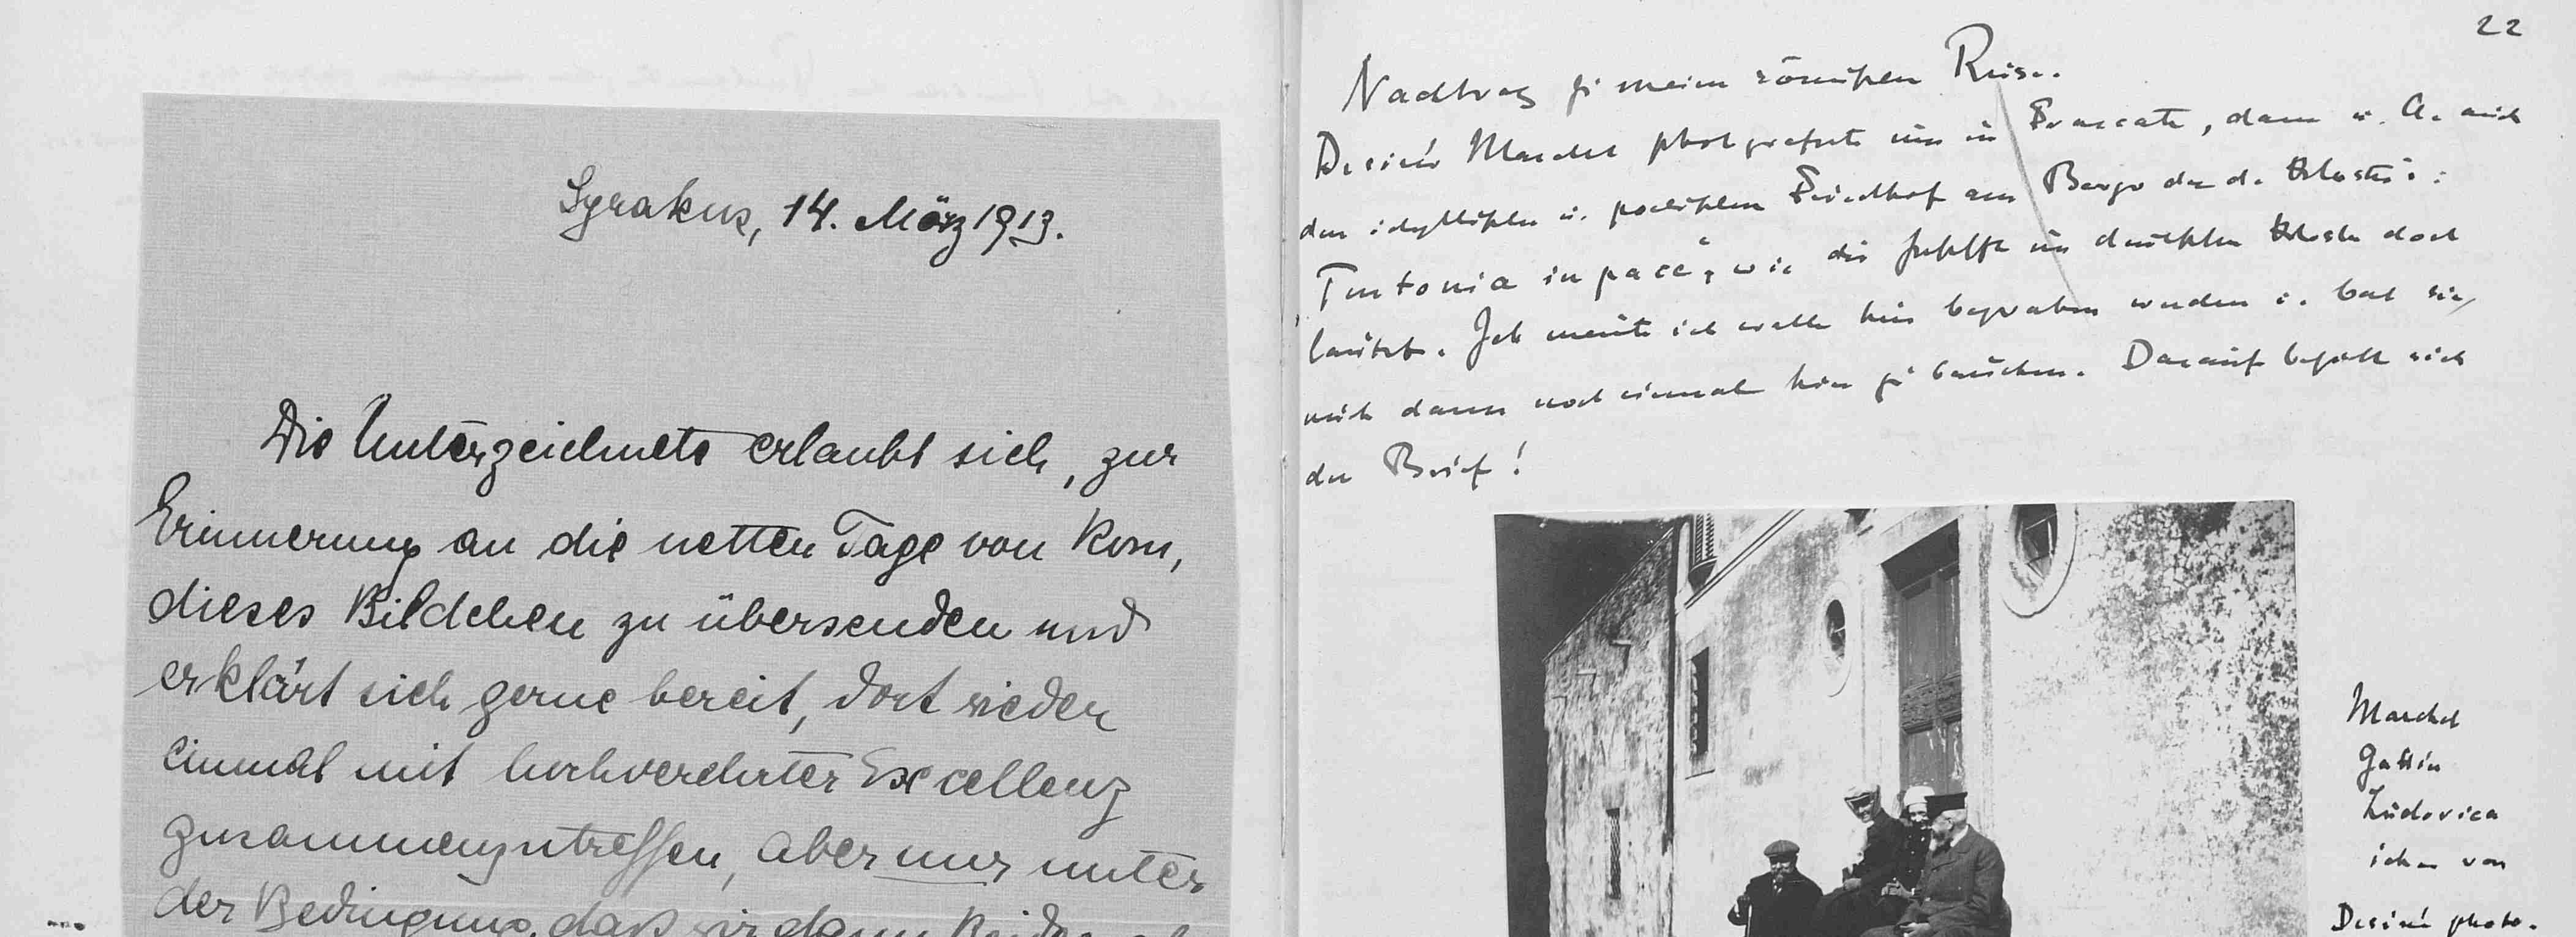 Syrakus, 14. März 1913.
Die Unterzeichnete erlaubt sich, zur
Erinnerung an die netten Tage von Rom,
dieses Bildchen zu übersenden und
erklärt sich gerne bereit, dort wieder
einmal mit hochverehrter Excellenz
zusammenzutreffen, aber nur unter
der Bedingung, daß wir dann Beide
22
Nachtrag zu meiner römischen Reise.
Desiré photografierte uns in Frascati, dann u. A. auch
den idyllischen u. poetischen Friedhof am Berge den die Kloster:
"Teutonia in pace", wie die im deutschen Kloster dort
lautet. Ich meinte ich wolle hier begraben werden u. bat sie,
mich dann noch einmal hier zu besuchen. Darauf bezieht sich
der Brief!
Gattin
Ludovica
ich von
Desiré photo-